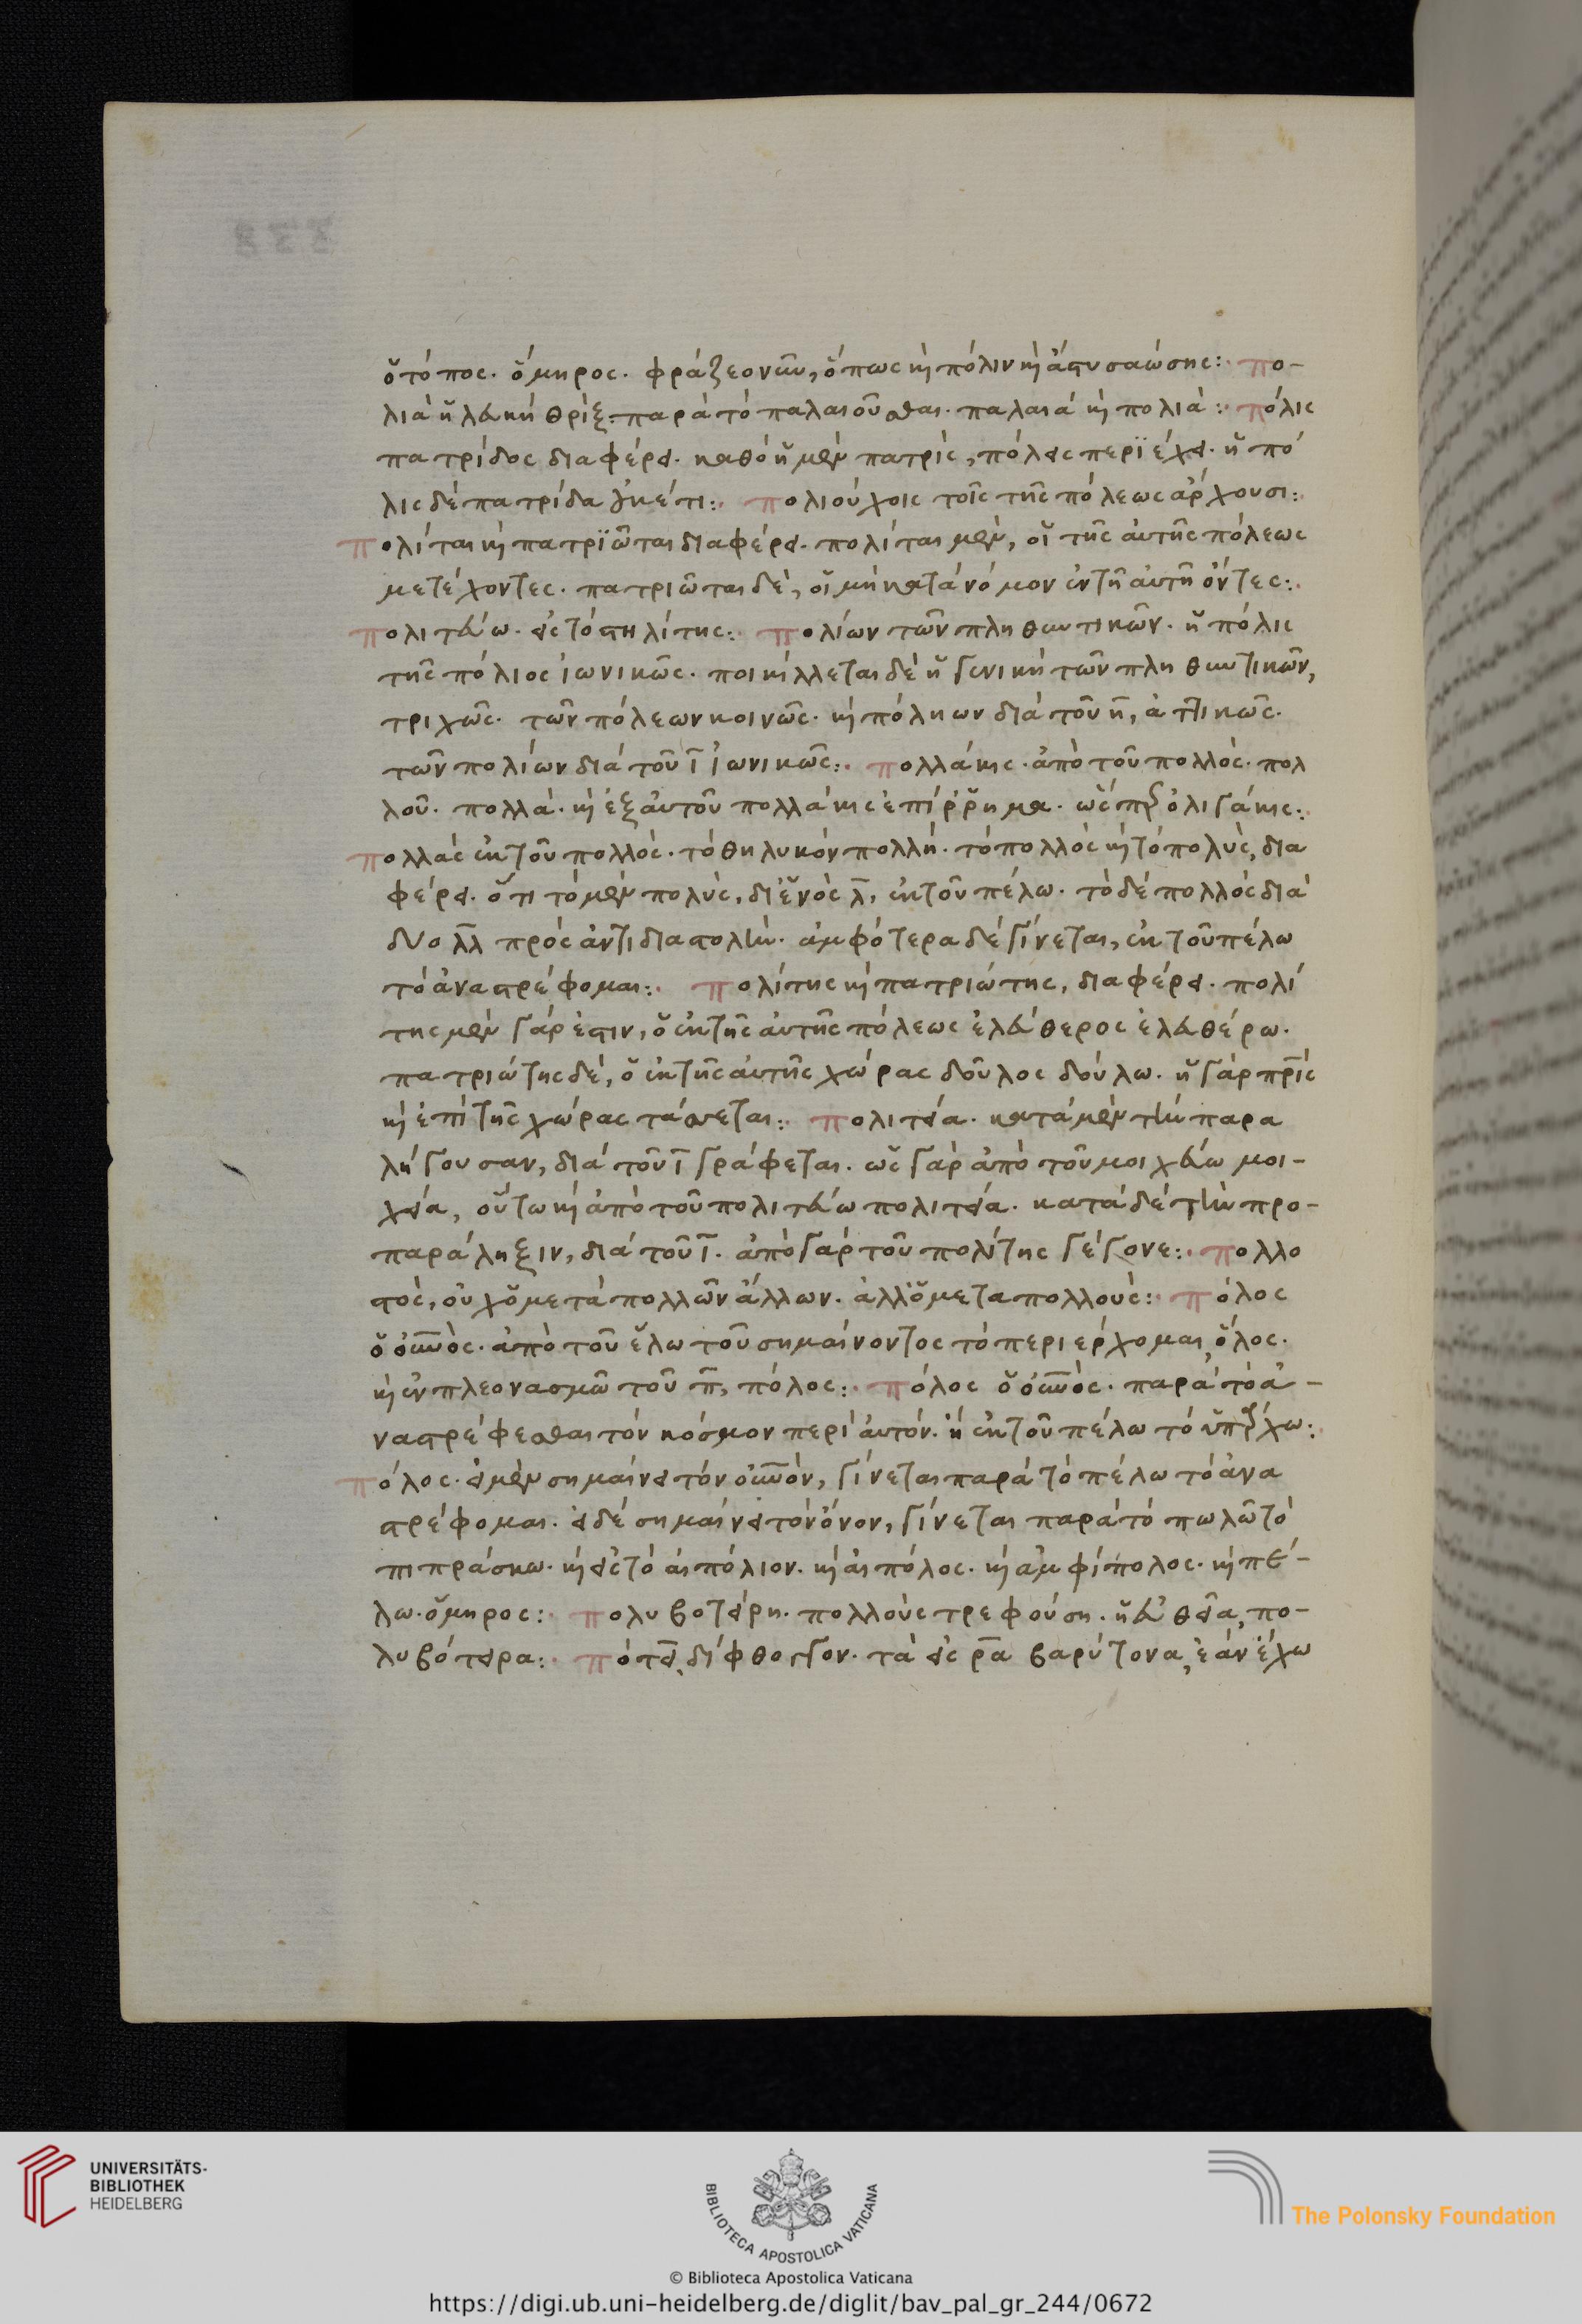 ὁ τόπος. ὅμηρος. φράζεο νῦν, ὅπως κὴ πόλιν κὴ ἄστυ σαώσης: πο-
λιὰ ἡ λευκὴ θρίξ. παρὰ τὸ παλαιοῦσθαι. παλαιά κὴ πολιὰ: πόλις
πατρίδος διαφέρει. καθὸ ἡ μὲν πατρὶς, πόλεις περϊέχει. ἡ πό
λις δὲ πατρίδα οὐκέτι: πολιούχοις τοῖς τῆς πόλεως ἄρχουσι:
πολίται κὴ πατρϊῶται διαφέρει. πολίται μὲν, οἱ τῆς αὐτῆς πόλεως
μετέχοντες. πατριῶται δὲ, οἱ μὴ κατὰ νόμον ἐν τῆ αὐτῆ ὄντες:
πολιτεύω. εἰς τὸ στηλίτης: πολίων τῶν πληθυντικῶν. ἡ πόλις
τῆς πόλιος ἰωνικῶς. ποικίλλεται δὲ ἡ γενικὴ τῶν πληθυντικῶν,
τριχῶς. τῶν πόλεων κοινῶς. κὴ πόληων διὰ τοῦ η, ἀττικῶς.
τῶν πολίων διὰ τοῦ ι ἰωνικῶς: πολλάκις. ἀπὸ τοῦ πολλὸς. πολ
λοῦ. πολλὰ. κὴ ἐξ αὐτοῦ πολλάκις ἐπίῤῥημα. ὥσπερ ὀλιγάκις:
πολλὰς ἐκ τοῦ πολλὸς. τὸ θηλυκὸν πολλὴ. τὸ πολλὸς κὴ τὸ πολὺς, δια
φέρει. ὅτι τὸ μὲν πολὺς, δι ἑνὸς λ, ἐκ τοῦ πέλω. τὸ δὲ πολλὸς διὰ
δύο λλ πρὸς ἀντιδιαστολὴν. ἀμφότερα δὲ γίνεται, ἐκ τοῦ πέλω
τὸ ἀναστρέφομαι: πολίτης κὴ πατριώτης, διαφέρει. πολί
της μὲν γάρ ἐστιν, ὁ ἐκ τῆς αὐτῆς πόλεως ἐλεύθερος ἐλευθέρω.
πατριώτης δὲ, ὁ ἐκ τῆς αὐτῆς χώρας δοῦλος δούλω. ἡ γὰρ πρὶς
κὴ ἐπὶ τῆς χώρας τάσσεται: πολιτεία. κατὰ μὲν τὴν παρα
λήγουσαν, διὰ τοῦ ι γράφεται. ὡς γὰρ ἀπὸ τοῦ μοιχεύω μοι-
χεία, οὕτω κὴ ἀπὸ τοῦ πολιτεύω πολιτεία. κατὰ δὲ τὴν προ-
παράληξιν, διὰ τοῦ ι. ἀπὸ γὰρ τοῦ πολίτης γέγονε: πολλο
στὸς, οὐχ ὁ μετὰ πολλῶν ἄλλων. ἀλλ ὁ μετα πολλοὺς: πόλος
ὁ οὐνὸς. ἀπὸ τοῦ ἕλω τοῦ σημαίνοντος τὸ περιέρχομαι, ὅλος.
κὴ ἐν πλεονασμῶ τοῦ π, πόλος: πόλος ὁ οὐνὸς. παρὰ τὸ ἀ-
ναστρέφεσθαι τὸν κόσμον περὶ αὐτόν. ἢ ἐκ τοῦ πέλω τὸ ὑπάρχω:
πόλος. εἰ μὲν σημαίνει τὸν οὐνὸν, γίνεται παρὰ τὸ πέλω τὸ ἀνα
στρέφομαι. εἰ δὲ σημαίνει τὸν ὄνον, γίνεται παρὰ τὸ πωλῶ τὸ
πιπράσκω. κὴ εἰς τὸ αἰπόλιον. κὴ αἰπόλος. κὴ ἀμφίπολος. κὴ πέ-
λω. ὅμηρος: πολυβοτείρη. πολλοὺς τρεφούση. ἡ εὐθεῖα, πο-
λυβότειρα: πότει, δίφθογγον. τὰ εἰς ρα βαρύτονα, ἐὰν ἔχω
338
UNIVERSITÄTS-
BIBLIOTHEK
HEIDELBERG
BIBLIOTECA APOSTOLICA VATICANA
The Polonsky Foundation
© Biblioteca Apostolica Vaticana
https://digi.ub.uni-heidelberg.de/diglit/bav_pal_gr_244/0672